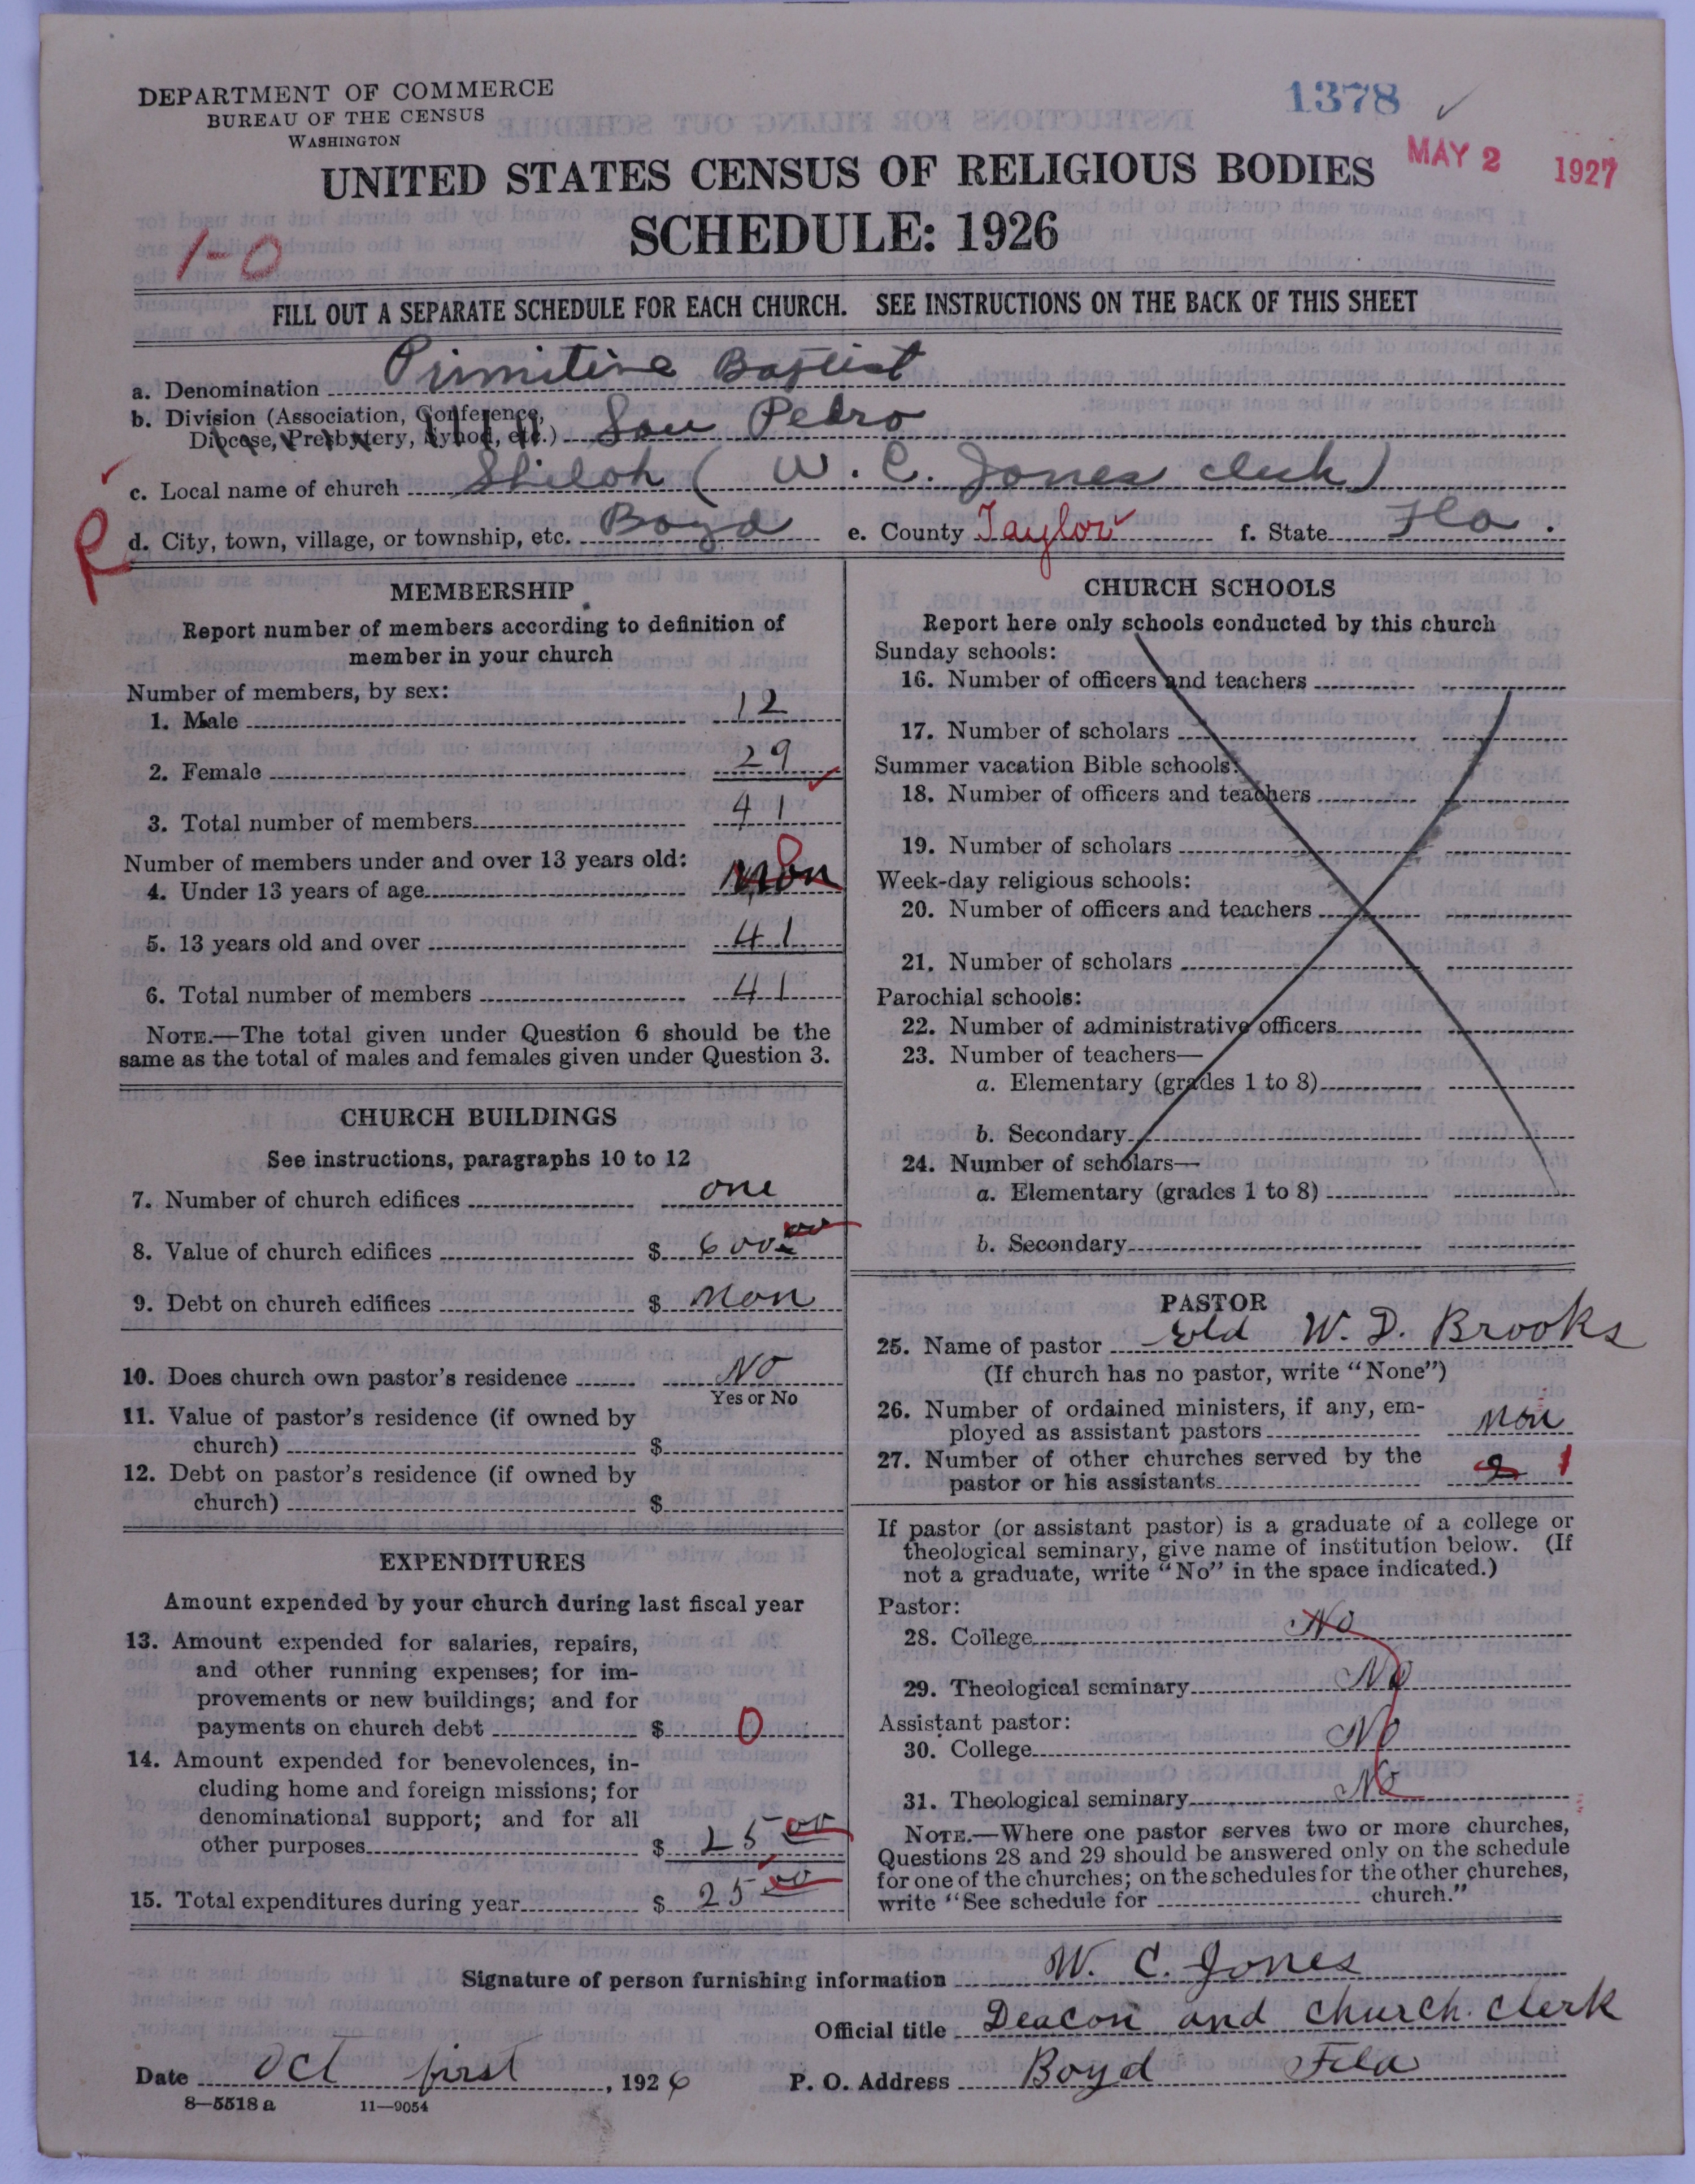 DEPARTMENT OF COMMERCE
BUREAU OF THE CENSUS
WASHINGTON
1378
MAY 2 1927
UNITED STATES CENSUS OF RELIGIOUS BODIES
SCHEDULE: 1926
1-0
FILL OUT A SEPARATE SCHEDULE FOR EACH CHURCH. SEE INSTRUCTIONS ON THE BACK OF THIS SHEET
a. Denomination Primitive Baptist
b. Division (Association, Conference,
Diocese, Presbytery, Synod, etc.) San Pedro
c. Local name of church Shiloh ( W. C. Jones clerk)
R
d. City, town, village, or township, etc. Boyd e. County Taylor f. State Fla.
MEMBERSHIP
Report number of members according to definition of
member in your church
Number of members, by sex:
1. Male 12
2. Female 29
3. Total number of members 41
Number of members under and over 13 years old:
4. Under 13 years of age non 0
5. 13 years old and over 41
6. Total number of members 41
NOTE.—The total given under Question 6 should be the
same as the total of males and females given under Question 3.
CHURCH BUILDINGS
See instructions, paragraphs 10 to 12
7. Number of church edifices one
8. Value of church edifices $ 600 00
9. Debt on church edifices $ non
10. Does church own pastor's residence No
Yes or No
11. Value of pastor's residence (if owned by
church) $
12. Debt on pastor's residence (if owned by
church) $
EXPENDITURES
Amount expended by your church during last fiscal year
13. Amount expended for salaries, repairs,
and other running expenses; for im-
provements or new buildings; and for
payments on church debt $ 0
14. Amount expended for benevolences, in-
cluding home and foreign missions; for
denominational support; and for all
other purposes $ 25 00
15. Total expenditures during year $ 25 00
CHURCH SCHOOLS
Report here only schools conducted by this church
Sunday schools:
16. Number of officers and teachers
17. Number of scholars
Summer vacation Bible schools:
18. Number of officers and teachers
19. Number of scholars
Week-day religious schools:
20. Number of officers and teachers
21. Number of scholars
Parochial schools:
22. Number of administrative officers
23. Number of teachers—
a. Elementary (grades 1 to 8)
b. Secondary
24. Number of scholars—
a. Elementary (grades 1 to 8)
b. Secondary
PASTOR
25. Name of pastor Eld W. D. Brooks
(If church has no pastor, write "None")
26. Number of ordained ministers, if any, em-
ployed as assistant pastors non
27. Number of other churches served by the
pastor or his assistants 2 1
If pastor (or assistant pastor) is a graduate of a college or
theological seminary, give name of institution below. (If
not a graduate, write "No" in the space indicated.)
Pastor:
28. College No
29. Theological seminary No
Assistant pastor:
30. College No
31. Theological seminary No
NOTE.—Where one pastor serves two or more churches,
Questions 28 and 29 should be answered only on the schedule
for one of the churches; on the schedules for the other churches,
write "See schedule for church."
Signature of person furnishing information W. C. Jones
Official title Deacon and church clerk
Date Oct first, 1926 P. O. Address Boyd Fla
8—5518 a 11—9054